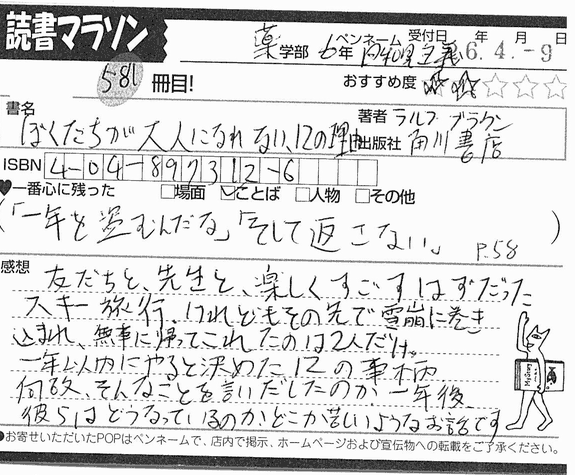 読書マラソン
薬学部 6年 ペンネーム 受付日 年 月 日
6.4.-9
581 冊目! おすすめ度 ★★☆☆☆
書名 ぼくたちが大人になれない、12の理由
著者 ラルフ ブラウン
出版社 角川書店
ISBN 4-04-897312-6
♥一番心に残った □場面 ☑ことば □人物 □その他
(「一年を盗むんだな」「そして返こない。 P.58 )
感想 友だちと、先生と、楽しくすごすはずだった
スキー旅行、けれどもその先で雪崩に巻き
込まれ、無事に帰ってこれたのは2人だけ。
一年以内にやると決めた12の事柄
何故、そんなことを言いだしたのか 一年後
彼らはどうなっているのか、どこか苦しいようなお話です
●お寄せいただいたPOPはペンネームで、店内で掲示、ホームページおよび宣伝物への転載をご了承ください。